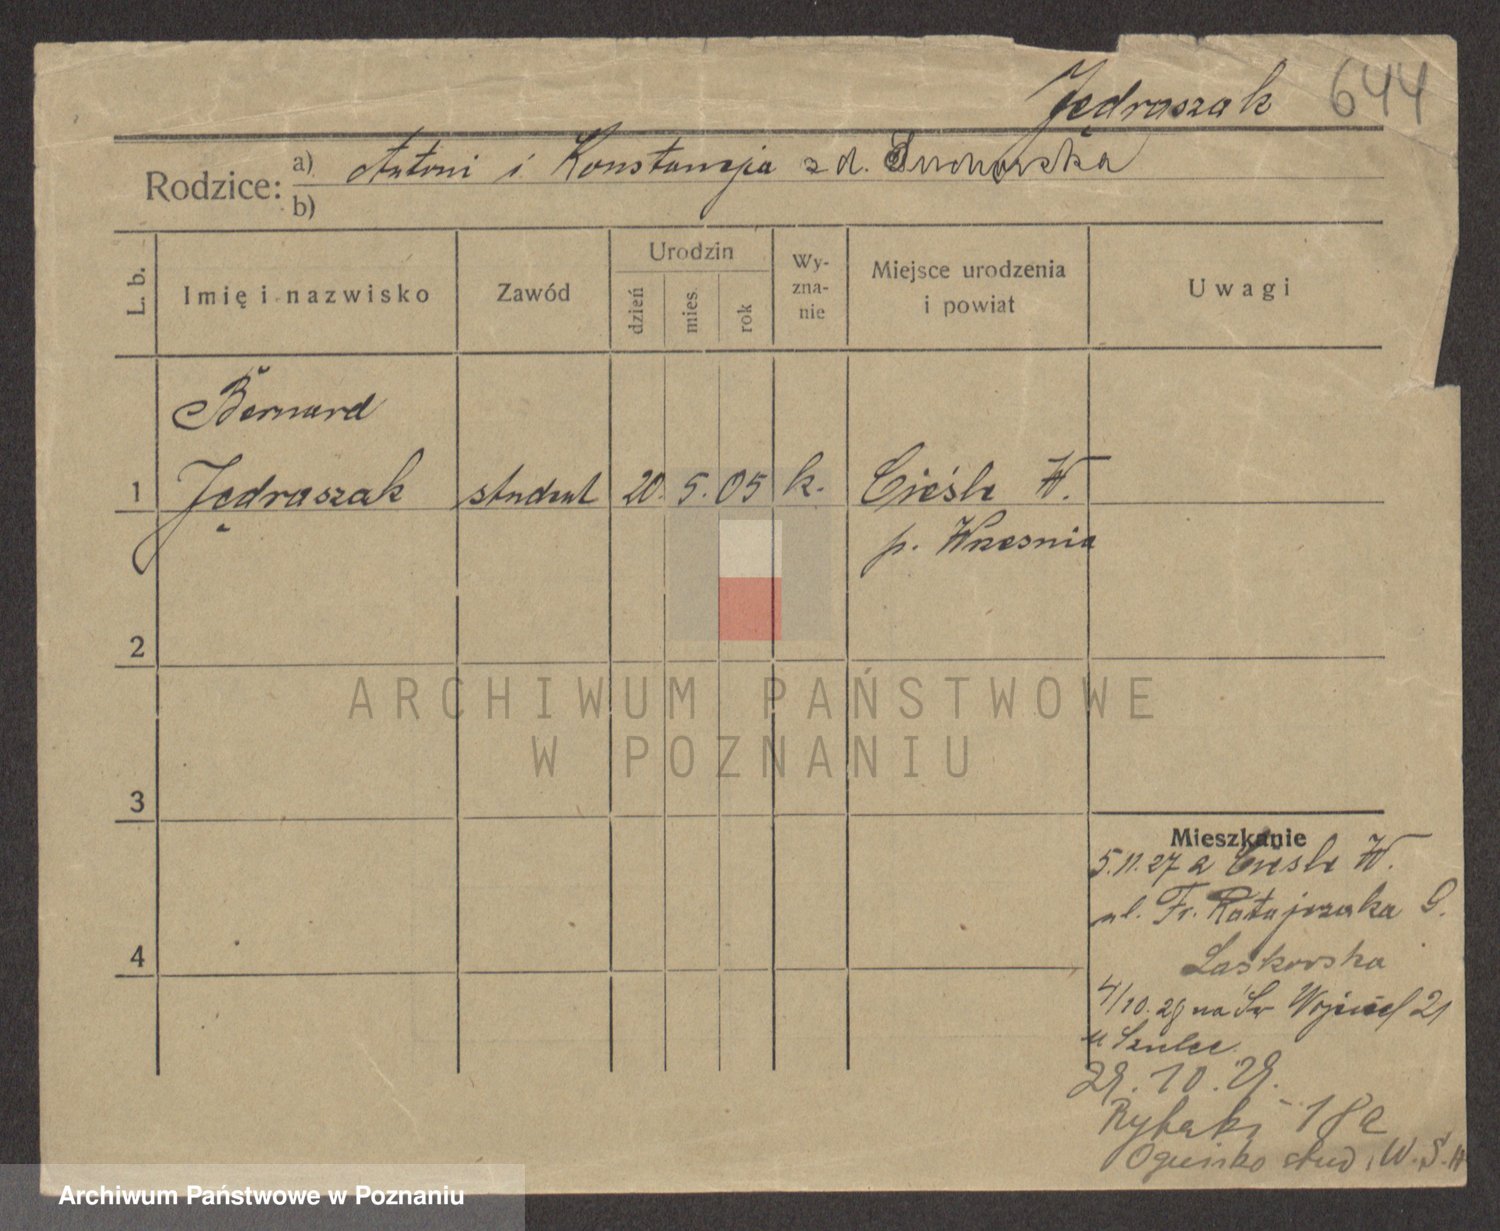 Jędraszak 644
Rodzice: a) Antoni i Konstancja z d. Suchorska
b)
L. b.
Imię i nazwisko
Zawód
Urodzin
dzień
mies.
rok
Wy-
zna-
nie
Miejsce urodzenia
i powiat
Uwagi
Bernard
1 Jędraszak student 20. 5. 05 k. Cieśle W.
p. Wresnia
2
3
4
ARCHIWUM PAŃSTWOWE
W POZNANIU
Mieszkanie
5.11.27 a Cieśle W.
ul. Fr. Ratajczaka 9.
Laskowska
4/10.28 na Św Wojciech 21
u Szulec
29.10.29.
Rybaki 18a
Ognisko stud. W.S.H
Archiwum Państwowe w Poznaniu